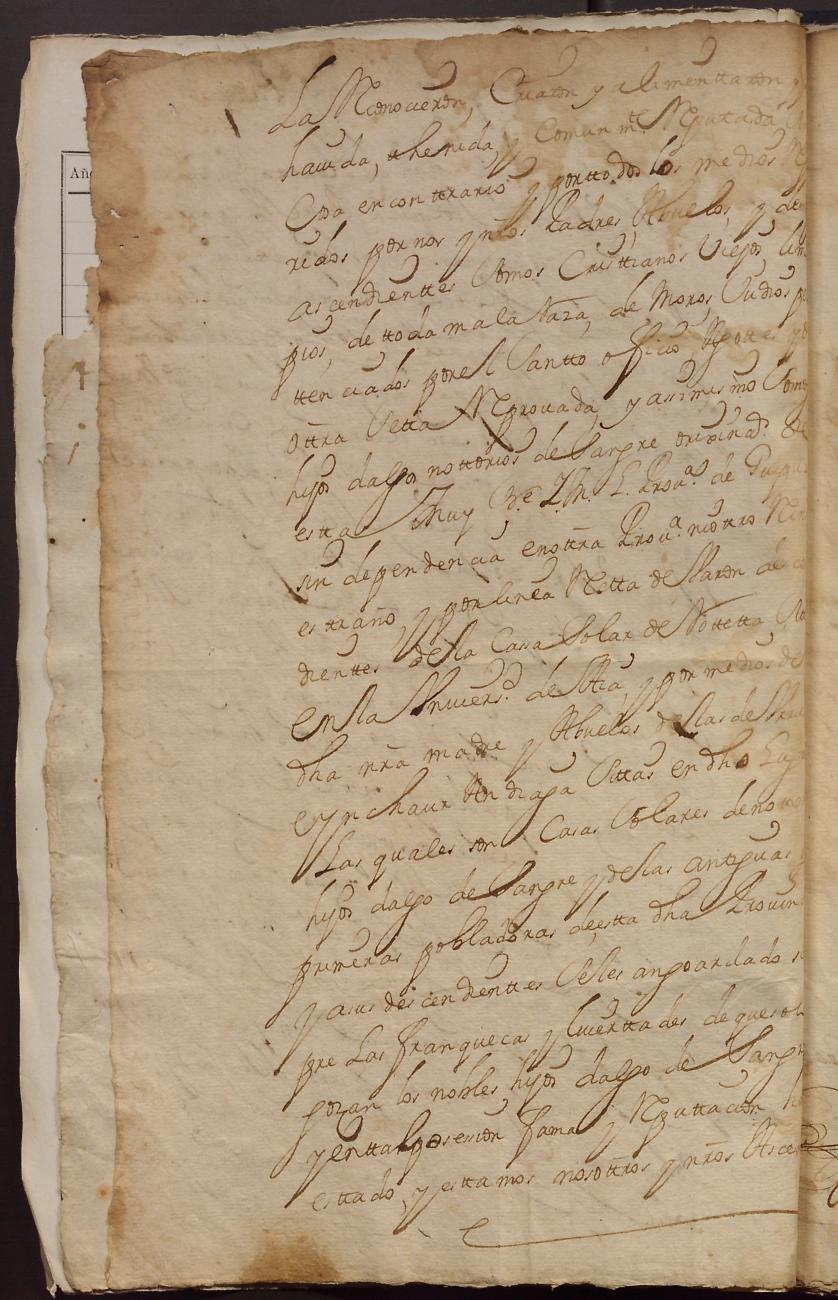 Año
La Reconocieron, Criaron y alimenttaron y
hauida, thenida, y Comun mte Reputada
Cosa en conttrario y por ttodos los medios
ridos por nos y nros Padres Abuelos, y de
ascendienttes Somos Cristtianos Viejos, lim
pios, de ttoda mala Raza, de Moros, Judios pe
ttenciados por el Santto oficio Agottes y
ottra Setta Reprouada, y asimismo Somos
hijos dalgo nottorios de Sangre originads de
estta Muy Ne. Y M. L. Prova de Guipuz
sin dependencia en otra Prova ni ottro Rei
esttraño, y por linea Retta de Varon de
dienttes de la Casa Solar de
En la Vniversd. de y por medios de
dha nra madre y Abuelos de las de
eynchaur Andiaga Sittas en dho Lug
Las quales son Casas Solares de no
hijos dalgo de Sangre y de las antiguas
primeras pobladoras de estta dha Provin
y a sus descendienttes Se les an goardado
pre Las franquecas y liuerttades de que
gozan los nobles hijos dalgo de Sangre
y en ttal posesion fama y Reputtacion
esttado, y esttamos nosottros y nros Asce